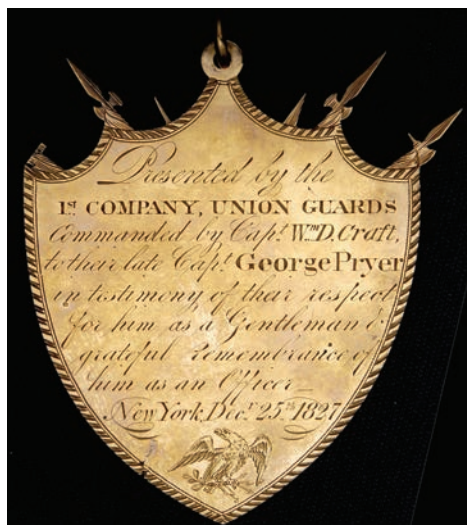 Presented by the
1ST COMPANY, UNION GUARDS
Commanded by Capt. Wm. D. Craft,
to their late Capt. George Pryer
in testimony of their respect
for him as a Gentleman &
grateful remembrance of
him as an Officer_
New York, Decr. 25th 1827